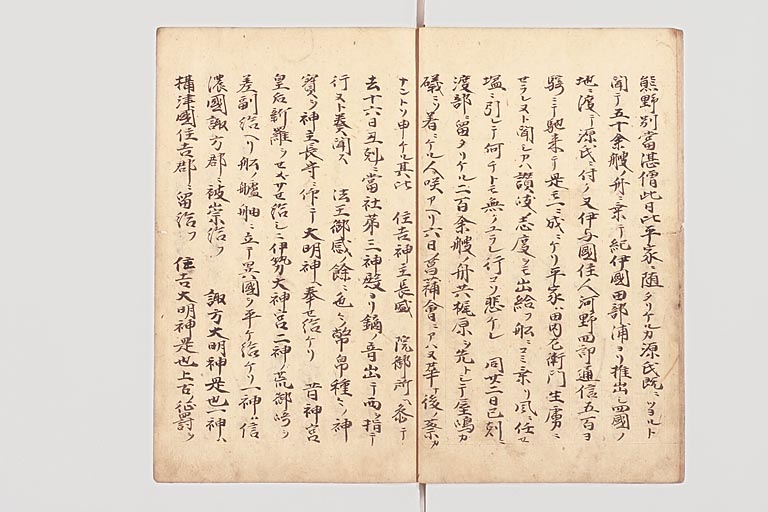 熊野別當湛僧此日比平家ニ随タリケルカ源氏既ニツヨルト
聞テ五十余艘ノ舟ニ乗テ紀伊國田部浦ヨリ推出シ四國ノ
地ニ渡テ源氏ニ付ノ又伊与國住人河野四郎通信五百ヨ
騎ニテ馳来テ是モ一ニ成ニケリ平家ハ田内左衛門生虜ニ
セラレヌト聞シカハ讃波志度ヲモ出給フ舩ニコミ乗リ風ニ任セ
塩ニ引レテ何チトモ無クユラレ行コソ悲ケレ 同廿二日巳剋ニ
渡部ニ留タリケル二百余艘ノ舟共梶原ヲ先トシテ屋嶋カ
礒ニソ着ニケル人咲アヘリ六日菖蒲會ニアハヌ花ケ後ノ葵カ
ナントソ申ケル其比 住吉神主長盛 院御所ヘ参テ
去十六日丑剋ニ當社第三神殿ヨリ鏑ノ音出テ西ヲ指テ
行ヌト奏聞ス 法王御感ノ餘ニ色々ノ幣帛種々ノ神
寳ヲ神主長守ニ作テ大明神ヘ奉セ給ケリ 昔神宮
皇后新羅ヲセメサせ給シニ伊勢大神宮二神ノ荒御崎ヲ
差副給ヘリ舩ノ艫舳ニ立テ異國ヲ平ケ給ケリ一神ハ信
濃國諏方郡ニ被崇給フ 諏方大明神是也一神ハ
攝津國住吉郡ニ留給フ 住吉大明神是也上古ノ征罸ヲ